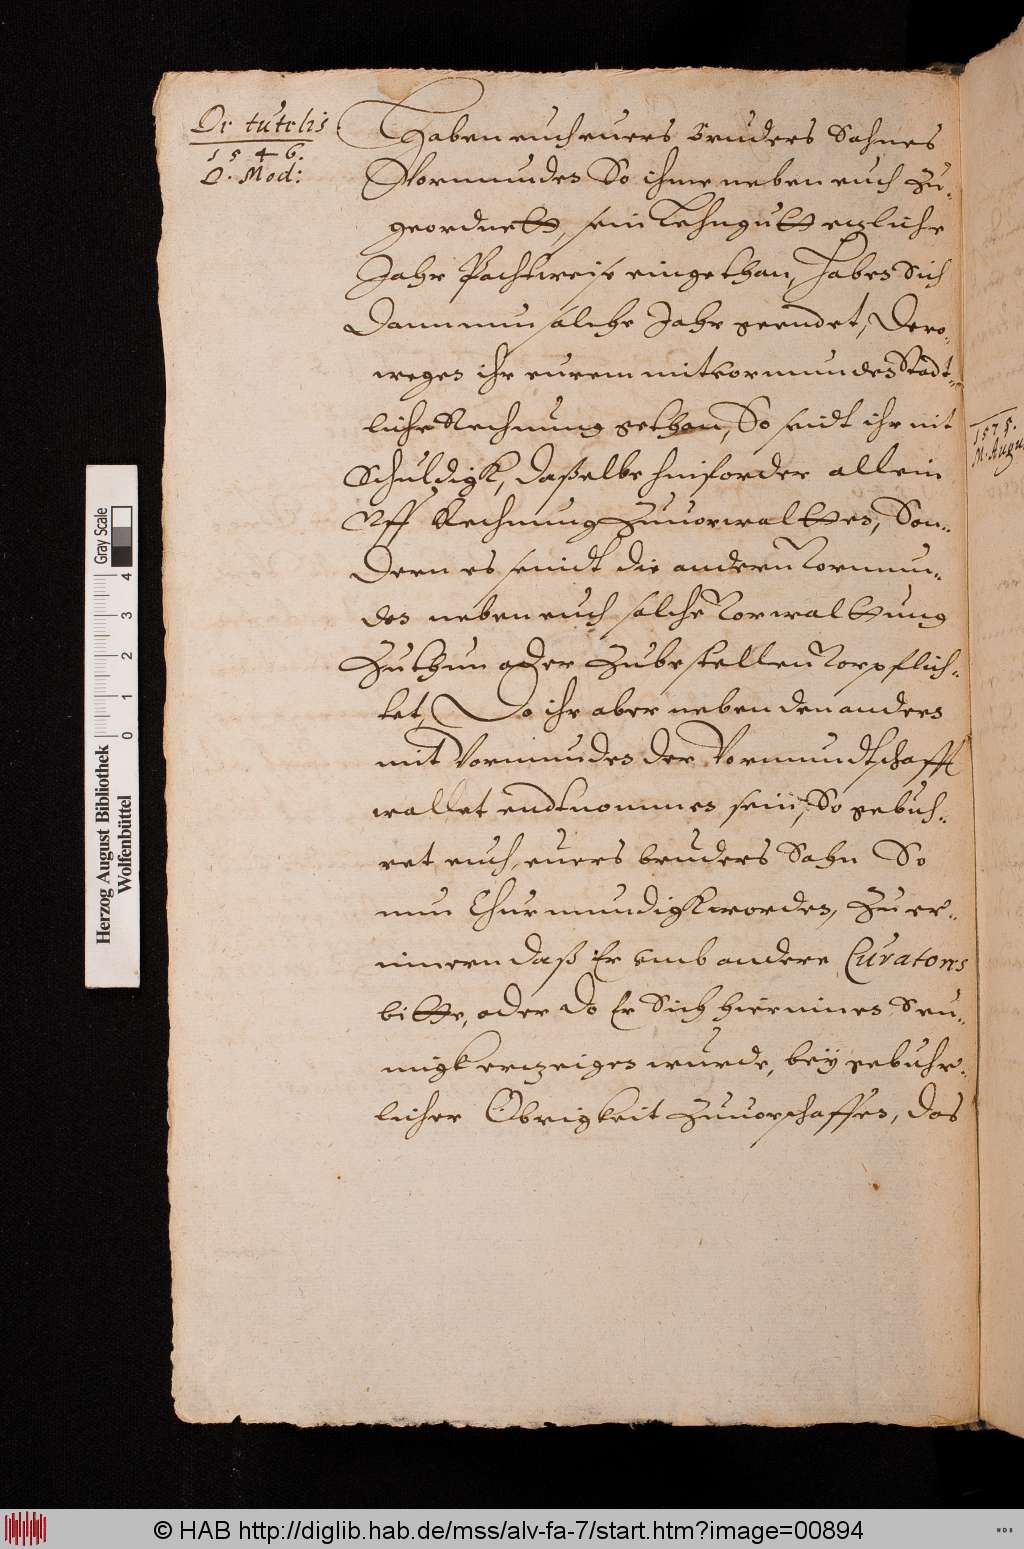 De tutelis
1546.
Q. Mod:
Haben euch euers bruders Sohnes
Vormunden So ihme neben euch zu-
geordnett, sein Lehngutt etzliche
Jahr Pachtweise eingethan, Haben sich
dann nun solche Jahr geendet, Dero-
wegen ihr eurem mitvormunden Stadt-
liche Rechnung gethan, So seidt ihr nit
Schuldigk, daßelbe hinforder allein
Uff Rechnung zuuorwalten, Son-
dern es seindt die andern Vormun-
den neben euch solche Vorwalttung
zuthun oder zubestellen Vorpflich-
tet, Do ihr aber neben den andern
mit Vormunden der Vormundtschafft
endtnommen sein, So gebuh-
ret euch, euers bruders Sohn So
nun worden, zu er-
innern daß Er umb andere Curatores
bitte, oder do Er Sich hierinnen Seu-
migk erzeigen wurde, bey gebuhr-
licher Obrigkeit zuuorschaffen, das
1575.
M. Augu
Herzog August Bibliothek
Wolfenbüttel
Gray Scale
0 1 2 3 4
© HAB http://diglib.hab.de/mss/alv-fa-7/start.htm?image=00894